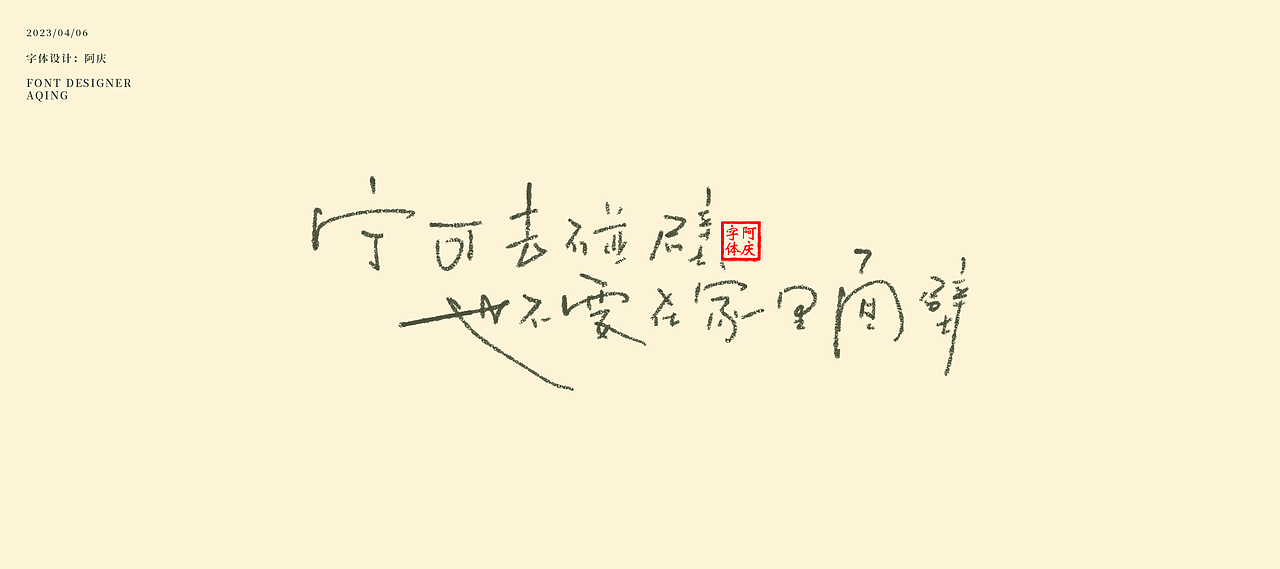 2023/04/06
字体设计：阿庆
FONT DESIGNER
AQING
宁可去碰壁
阿庆字体
也不要在家里面壁